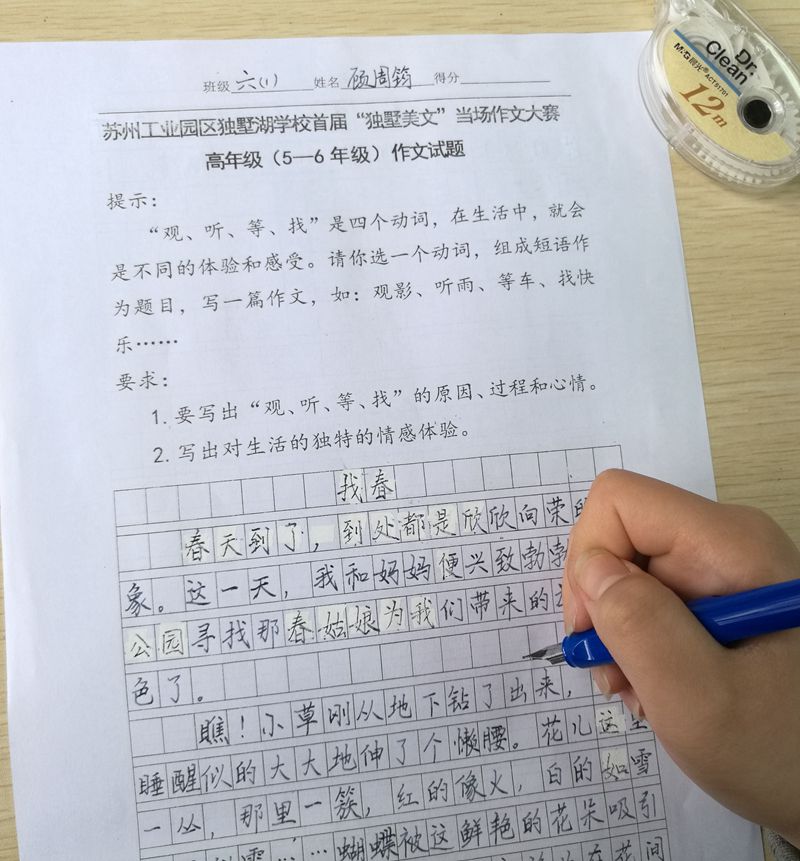 班级 六(1) 姓名 顾周筠 得分
苏州工业园区独墅湖学校首届“独墅美文”当场作文大赛
高年级（5—6年级）作文试题
提示：
“观、听、等、找”是四个动词，在生活中，就会
是不同的体验和感受。请你选一个动词，组成短语作
为题目，写一篇作文，如：观影、听雨、等车、找快
乐……
要求：
1.要写出“观、听、等、找”的原因、过程和心情。
2.写出对生活的独特的情感体验。
找春
春天到了，到处都是欣欣向荣的
象。这一天，我和妈妈便兴致勃勃
公园寻找那春姑娘为我们带来的
色了。
瞧！小草刚从地下钻了出来，
睡醒似的大大地伸了个懒腰。花儿这
一丛，那里一簇，红的像火，白的如雪
雪……蝴蝶被这鲜艳的花朵吸引
花间
M&G 晨光 ACT51701
Dr. Clean
12m